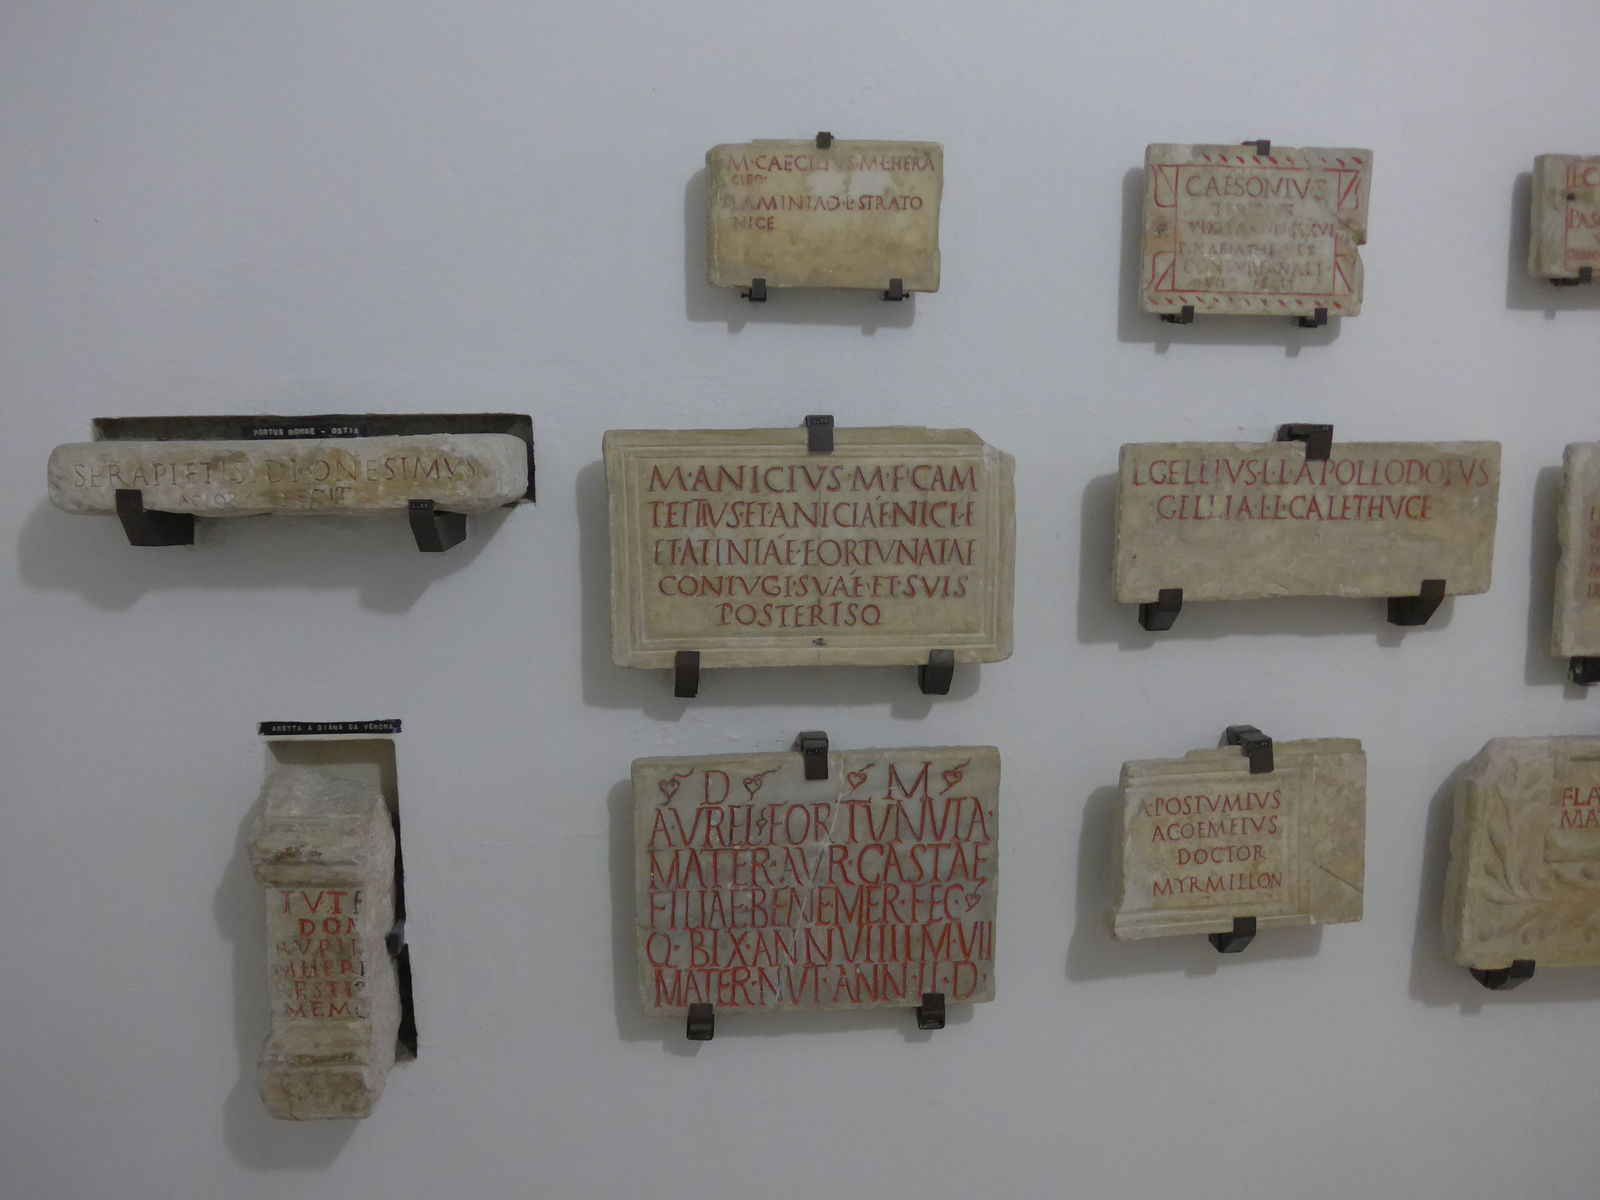 M·CAECILIVS·M·L·HERA
CLEO·
FLAMINIA·Ɔ·L·STRATO
NICE
CAESONIVS
VIXIT
FECIT
PORTUS ROMAE - OSTIA
SERAPI ET IS DI ONESIMVS
FECIT
M·ANICIVS·M·F·CAM
TETTIVS·ET·ANICIÁE·NICE
ET·ATINIÁE·FORTVNATAE
CONIVGI·SVÁE·ET·SVIS
POSTERISQ
L·GELLIVS·L·L·APOLLODOTVS
GELLIA·L·L·CALETHVCE
ARETTA A DIANA DA VERONA
DOM
MEMO
D M
AVREL FORTVNVTA·
MATER·AVR·CASTAE
FILIAE·BENEMER·FEC
Q·BIX·ANN·VIIII·M·VII
MATER·NVT·ANN·II·D·
A·POSTVMIVS
ACOEMETVS
DOCTOR
MYRMILLON
FLA
MA